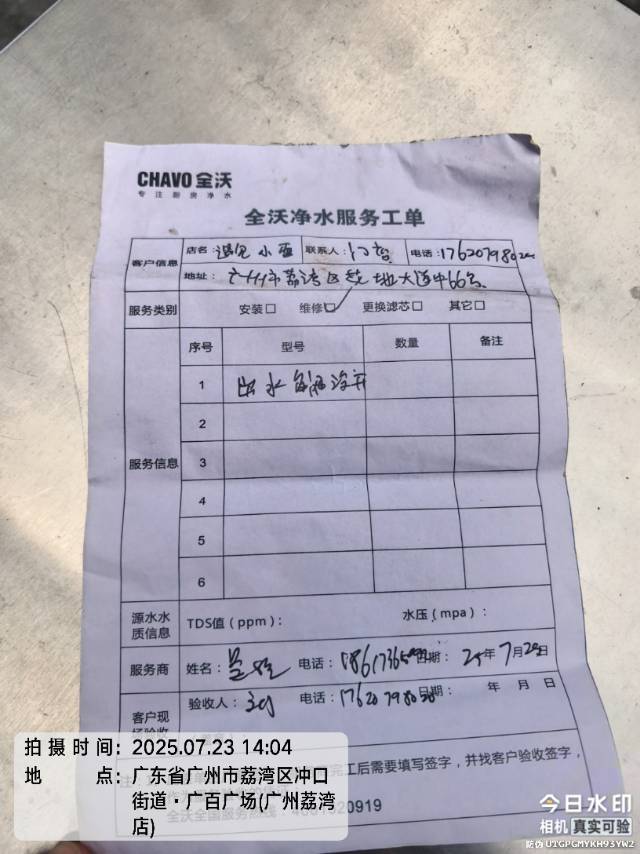 CHAVO 全沃
专注厨房净水
全沃净水服务工单
客户信息 店名: 遇见小面 联系人: 电话: 176207980
地址: 广州市荔湾区 地大道中66号
服务类别 安装□ 维修☑ 更换滤芯□ 其它□
服务信息 序号 型号 数量 备注
1 出水
2
3
4
5
6
源水水质信息 TDS值（ppm）: 水压（mpa）:
服务商 姓名: 电话: 日期: 25年7月23日
客户现场验收 验收人: 电话: 176207980 日期: 年 月 日
完工后需要填写签字，并找客户验收签字，
全沃全国服务热线: 4001520919
拍摄时间: 2025.07.23 14:04
地点: 广东省广州市荔湾区冲口
街道·广百广场(广州荔湾
店)
今日水印
相机 真实可验
防伪 UTGPGMYKH93YWZ